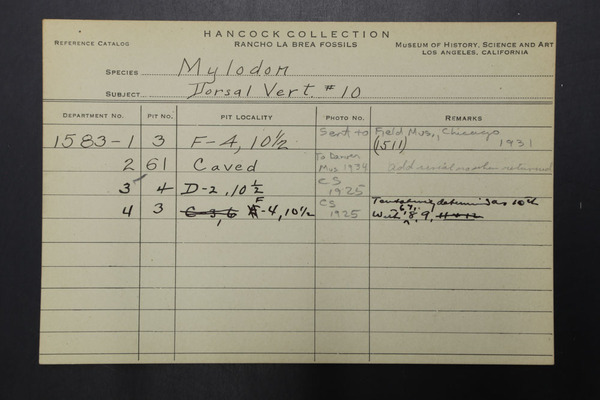 HANCOCK COLLECTION
REFERENCE CATALOG RANCHO LA BREA FOSSILS MUSEUM OF HISTORY, SCIENCE AND ART
LOS ANGELES, CALIFORNIA
SPECIES Mylodon
SUBJECT Dorsal Vert #10
DEPARTMENT NO. PIT NO. PIT LOCALITY PHOTO NO. REMARKS
1583-1 3 F-4, 10½ Sent to Field Mus., Chicago 1931
(1511)
2 61 Caved To Denver Mus 1934 returned
3 4 D-2, 10½ CS 1925
4 3 C-3, 6 F-4, 10½ CS 1925 as 10th
With 8 9,